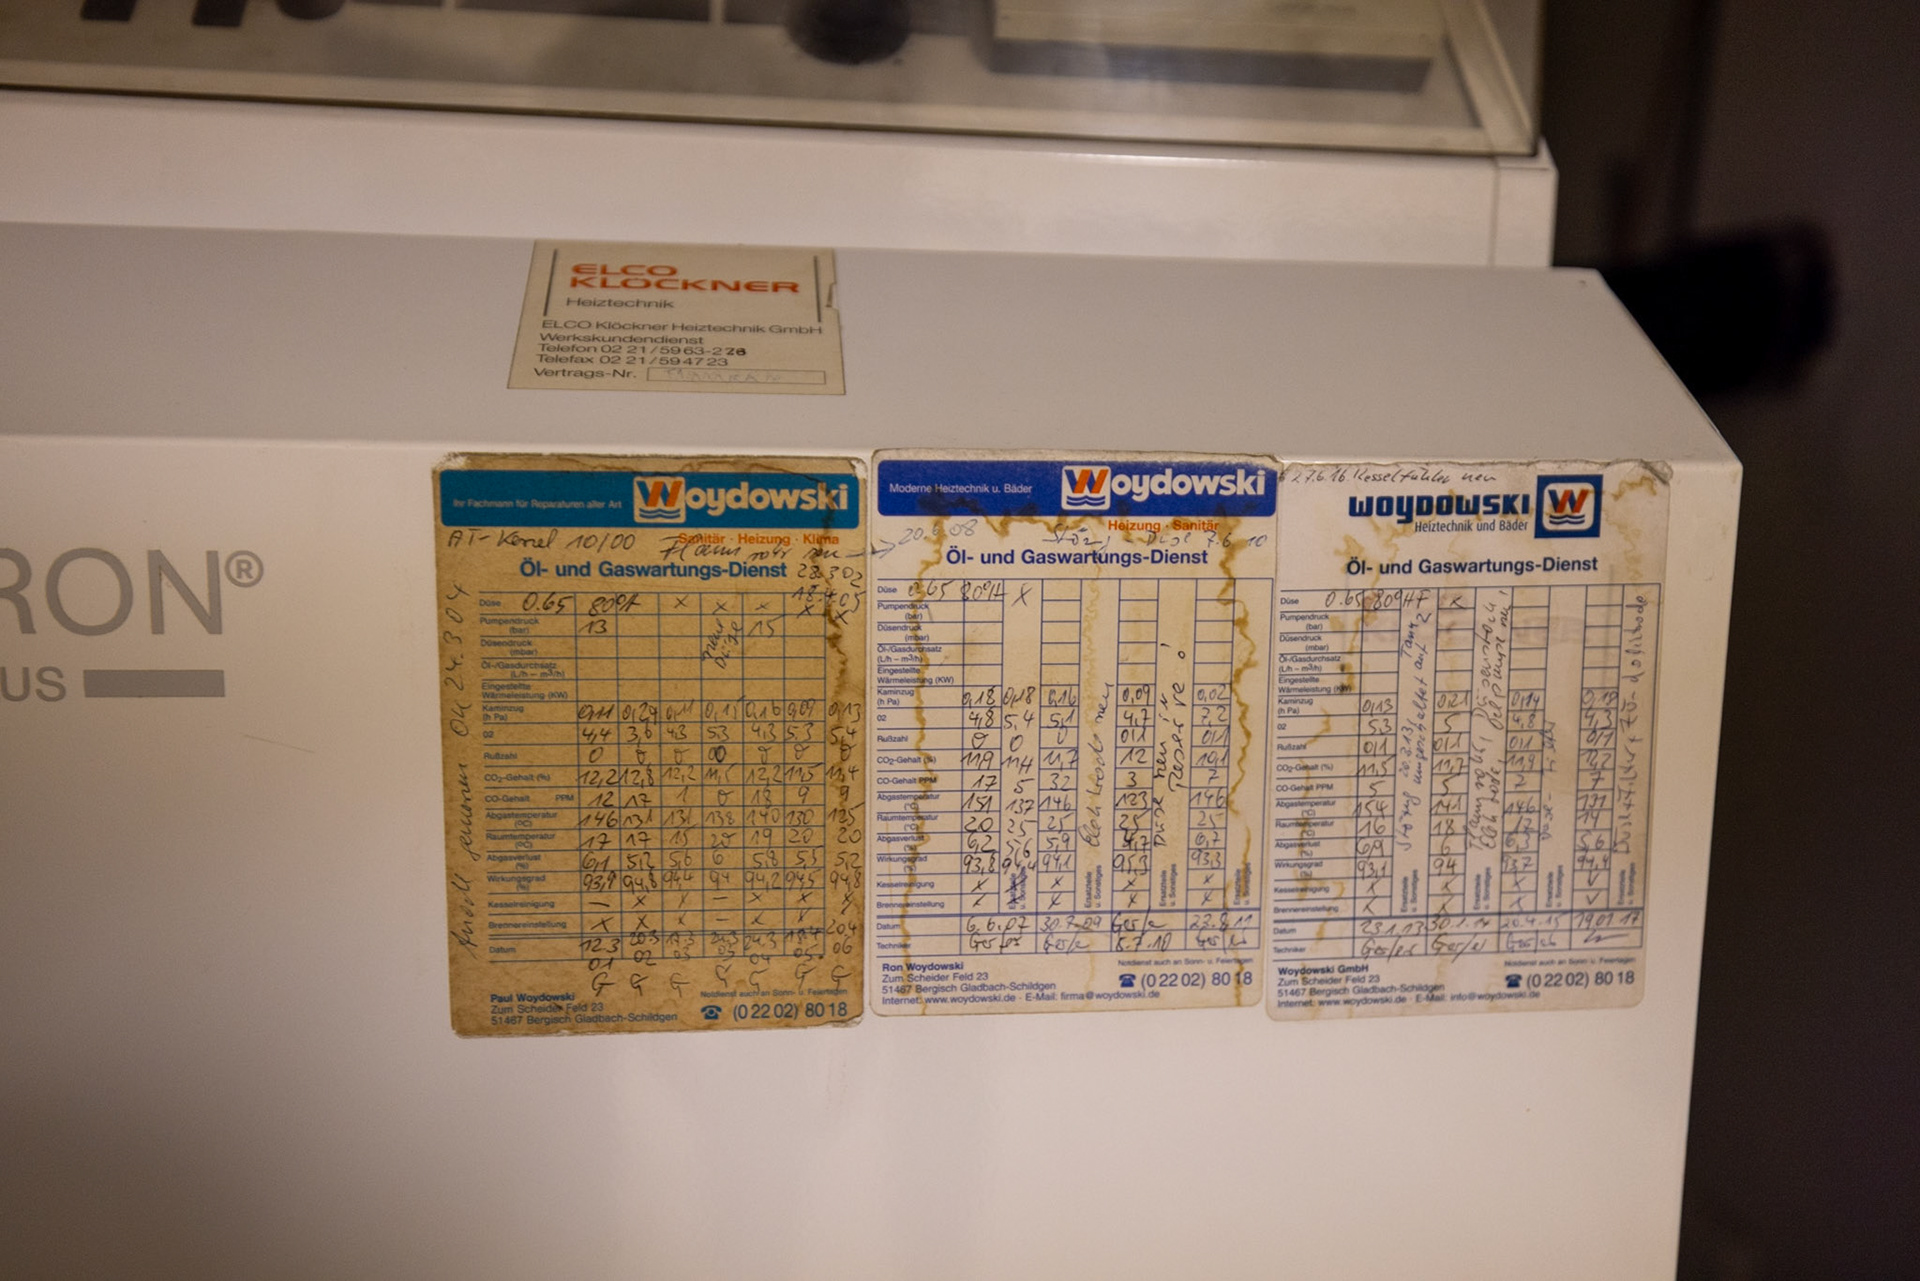 ELCO
KLÖCKNER
Heiztechnik
ELCO Klöckner Heiztechnik GmbH
Werkskundendienst
Telefon 02 21/59 63-2
Telefax 02 21/59 47 23
Vertrags-Nr.
RON®
US
Ihr Fachmann für Reparaturen aller Art
Woydowski
Sanitär · Heizung · Klima
10/00
Öl- und Gaswartungs-Dienst
04 24.3.04
Düse 0.65 80°H x x x x x
Pumpendruck (bar) 13 15
Düsendruck (mbar)
Öl-/Gasdurchsatz (L/h – m³/h)
Eingestellte Wärmeleistung (KW)
Kaminzug (h Pa) 0,11 0,29 0,11 0,15 0,16 0,09 0,13
02 4,4 3,6 4,3 5,3 4,3 5,3 5,4
Rußzahl 0 0 0 0 0 0 0
CO₂-Gehalt (%) 12,2 12,8 12,2 11,5 12,2 11,5 11,4
CO-Gehalt PPM 12 17 1 0 18 9 9
Abgastemperatur (°C) 146 131 131 138 140 130 125
Raumtemperatur (°C) 17 17 15 20 19 20 20
Abgasverlust (%) 6,1 5,2 5,6 6 5,8 5,5 5,2
Wirkungsgrad (%) 93,9 94,8 94,4 94 94,2 94,5 94,8
Kesselreinigung – x x – x x x
Brennereinstellung x x x – x x
Datum 12.3 01 02 03 03 04 05 20.4 06
G G G G G G G
Notdienst auch an Sonn- u. Feiertagen
Paul Woydowski
Zum Scheider Feld 23
51467 Bergisch Gladbach-Schildgen
☎ (0 22 02) 80 18
Moderne Heiztechnik u. Bäder
Woydowski
Heizung · Sanitär
20.6.08
7.6.10
Öl- und Gaswartungs-Dienst
Düse 0.65 80°H x
Pumpendruck (bar)
Düsendruck (mbar)
Öl-/Gasdurchsatz (L/h – m³/h)
Eingestellte Wärmeleistung (KW)
Kaminzug (h Pa) 0,18 0,18 0,16 0,09 0,02
02 4,8 5,4 5,1 4,7 7,2
Rußzahl 0 0 0 0,1 0,1
CO₂-Gehalt (%) 11,9 11,4 11,7 12 10,1
CO-Gehalt PPM 17 5 32 3 7
Abgastemperatur 151 137 146 123 146
Raumtemperatur 20 25 25 25 25
Abgasverlust 6,2 5,6 5,9 4,7 6,7
Wirkungsgrad 93,8 94,4 94,1 95,3 93,3
Kesselreinigung x x x x x
Brennereinstellung x x x x x
Düse neu in Reserve!
Ersatzteile u. Sonstiges
Ersatzteile u. Sonstiges
Ersatzteile u. Sonstiges
Datum 6.6.07 30.7.09 8.7.10
Techniker
Notdienst auch an Sonn- u. Feiertagen
Ron Woydowski
Zum Scheider Feld 23
51467 Bergisch Gladbach-Schildgen
☎ (0 22 02) 80 18
Internet: www.woydowski.de · E-Mail: firma@woydowski.de
27.6.16 Kesselfühler neu
WOYDOWSKI
Heiztechnik und Bäder
Öl- und Gaswartungs-Dienst
Düse 0.65 80°HF x
Pumpendruck (bar)
Düsendruck (mbar)
Öl-/Gasdurchsatz (L/h – m³/h)
Eingestellte Wärmeleistung (KW)
Kaminzug (h Pa) 0,13 0,21 0,14
02 5,3 5 4,8 4,3
Rußzahl 0,1 0,1 0,1 0,1
CO₂-Gehalt (%) 11,5 11,7 11,9 12,2
CO-Gehalt PPM 5 5 7
Abgastemperatur 154 141 146
Raumtemperatur 16 18
Abgasverlust 6,9 6 5,6
Wirkungsgrad 93,1 94 93,7 94,4
Kesselreinigung x x x
Brennereinstellung x x x
Störung 20.2.13 umgeschaltet auf Tank 2
Ölpumpe neu!
Ersatzteile u. Sonstiges
Ersatzteile u. Sonstiges
Datum 23.1.13 30.1.14 20.4.15 19.01.17
Techniker
Notdienst auch an Sonn- u. Feiertagen
Woydowski GmbH
Zum Scheider Feld 23
51467 Bergisch Gladbach-Schildgen
☎ (0 22 02) 80 18
Internet: www.woydowski.de · E-Mail: info@woydowski.de